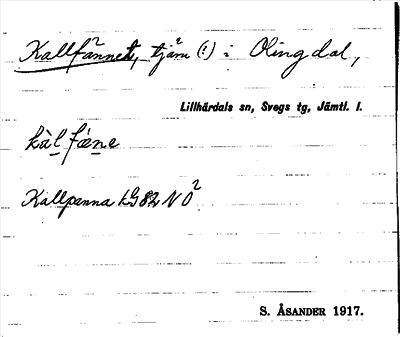 Kallfännet, tjärn (?) i Olingdal,
Lillhärdals sn, Svegs tg, Jämtl. l.
kàl fǽne
Kallpanna kG 82 NO 2
S. ÅSANDER 1917.